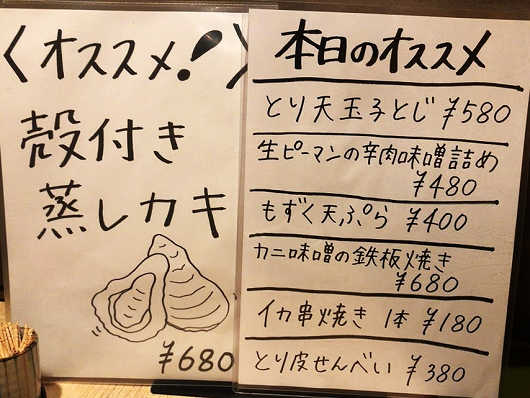 〈オススメ!〉
殻付き
蒸しカキ
¥680
本日のオススメ
とり天玉子とじ ¥580
生ピーマンの辛肉味噌詰め
¥480
もずく天ぷら ¥400
カニ味噌の鉄板焼き
¥680
イカ串焼き 1本 ¥180
とり皮せんべい ¥380